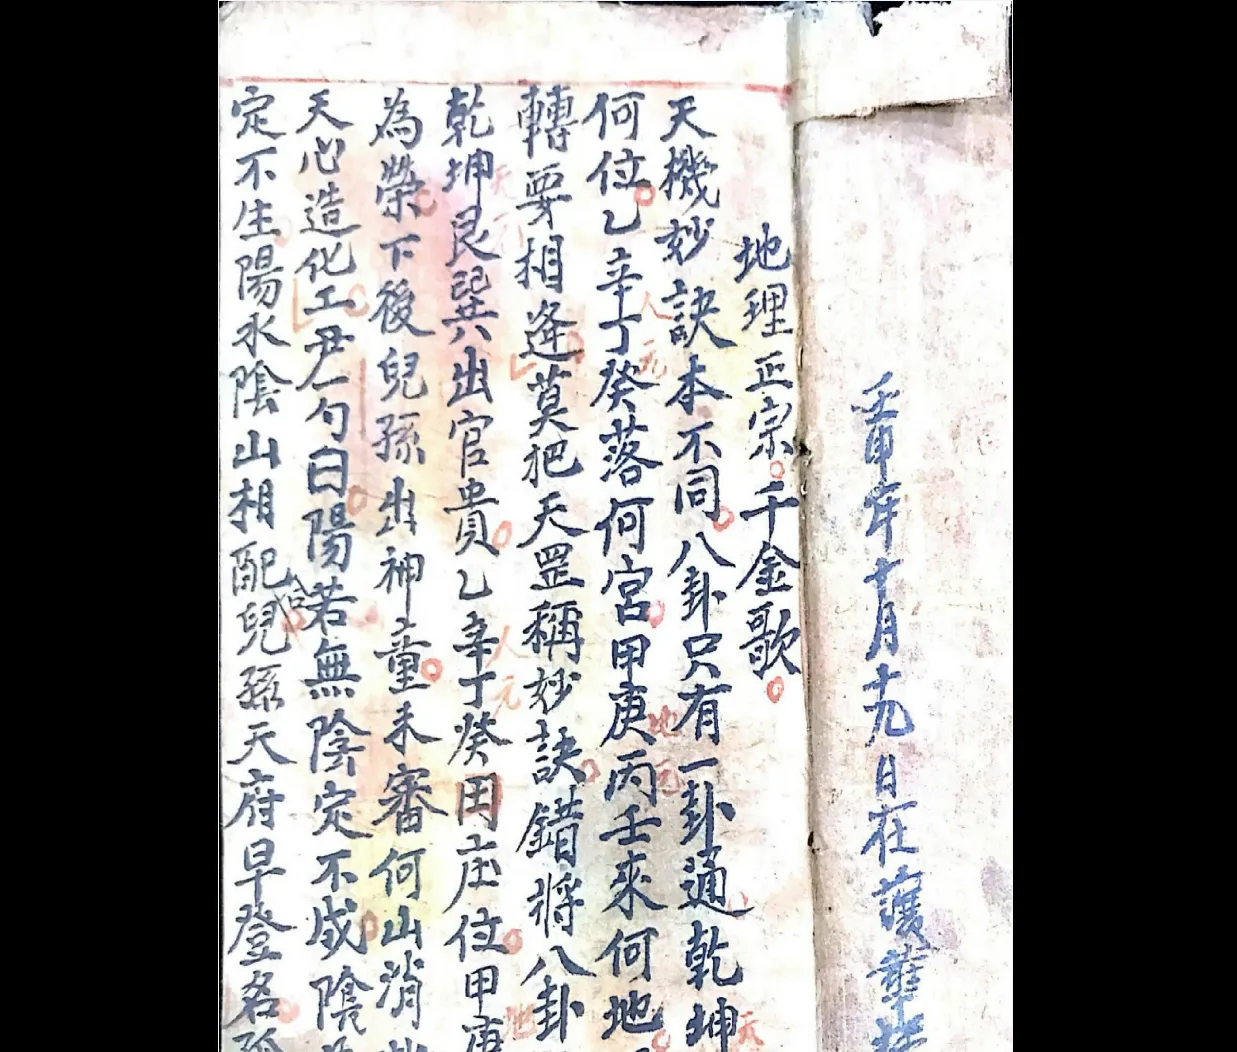 壬申年十月十九日在護華
地理正宗千金歌
天機妙訣本不同八卦只有一卦通乾坤
何位乙辛丁癸落何宮甲庚丙壬來何地
轉要相逢莫把天罡稱妙訣錯將八卦
乾坤艮巽出官貴乙辛丁癸田庄位甲庚
為榮下後兒孫出神童未審何山消
天心造化工尹一勺曰陽若無陰定不成陰
定不生陽水陰山相配合兒孫天府早登名
天
人元
地元
天元
人元
地